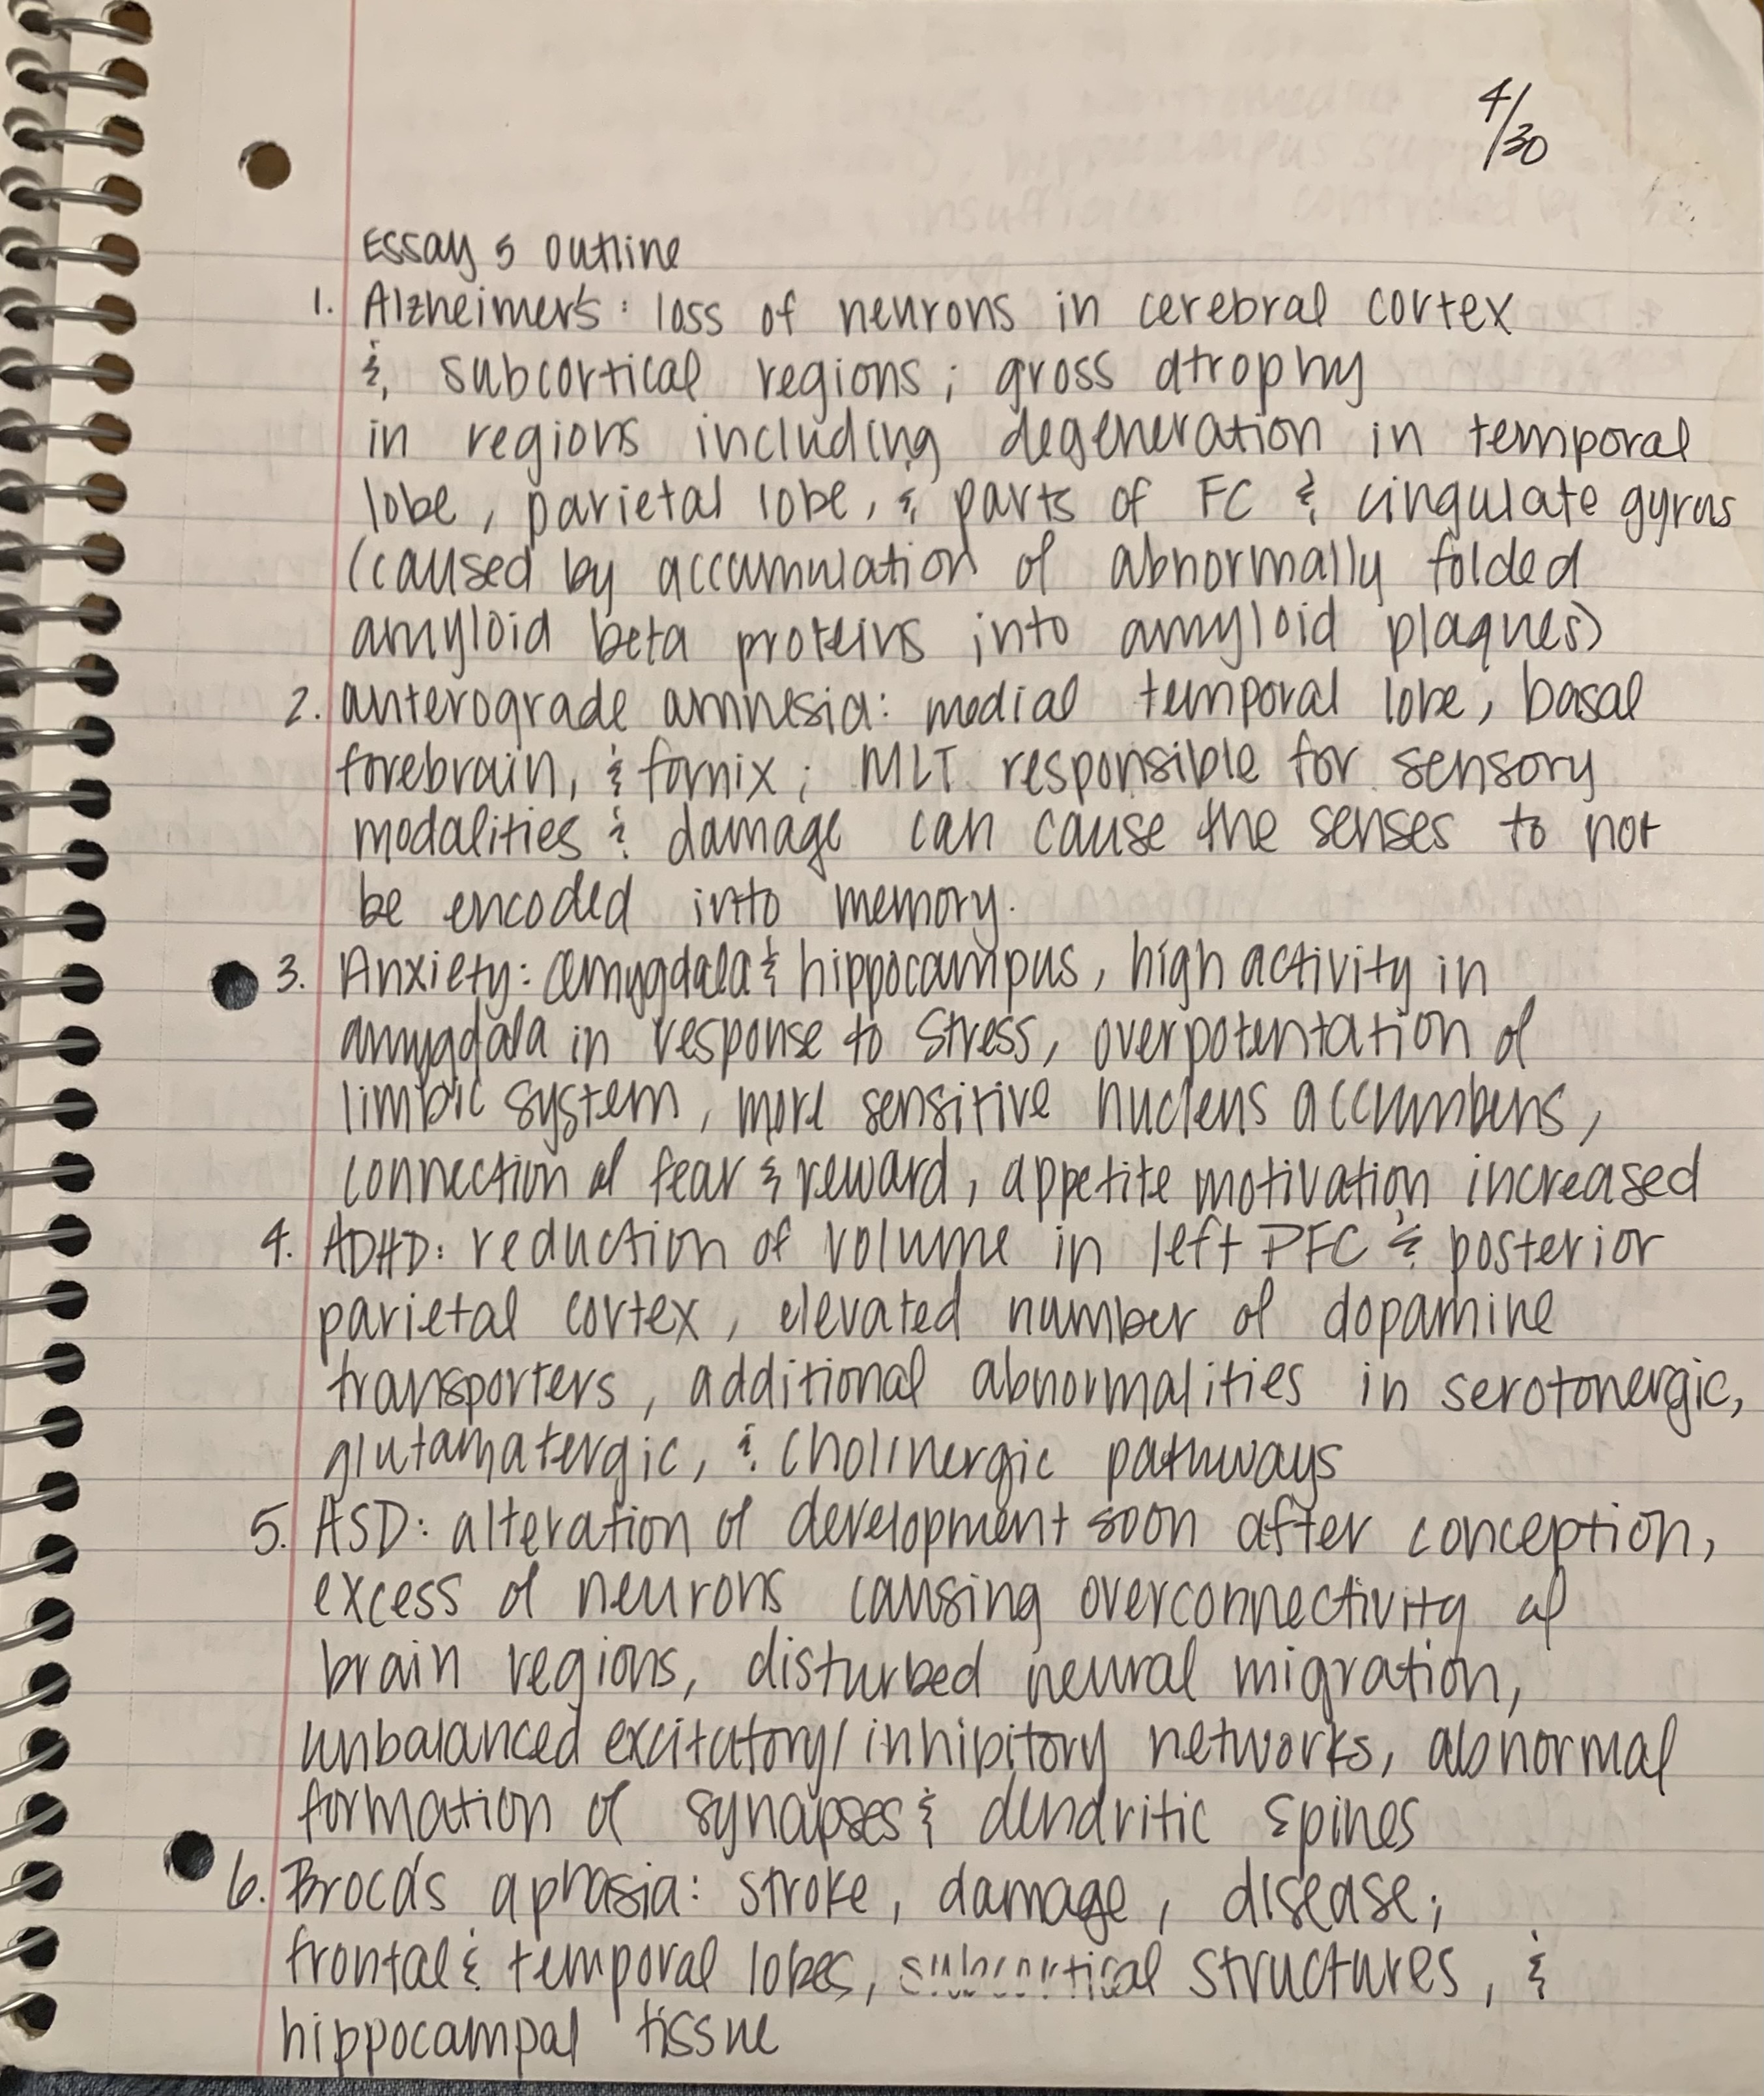 4/30
Essay 5 outline
1. Alzheimer's: loss of neurons in cerebral cortex
& subcortical regions; gross atrophy
in regions including degeneration in temporal
lobe, parietal lobe, & parts of FC & cingulate gyrus
(caused by accumulation of abnormally folded
amyloid beta proteins into amyloid plaques)
2. anterograde amnesia: medial temporal lobe, basal
forebrain, & fornix; MLT responsible for sensory
modalities & damage can cause the senses to not
be encoded into memory.
3. Anxiety: amygdala & hippocampus, high activity in
amygdala in response to stress, overpotentation of
limbic system, more sensitive nucleus accumbens,
connection of fear & reward, appetite motivation increased
4. ADHD: reduction of volume in left PFC & posterior
parietal cortex, elevated number of dopamine
transporters, additional abnormalities in serotonergic,
glutamatergic, & cholinergic pathways
5. ASD: alteration of development soon after conception,
excess of neurons causing overconnectivity of
brain regions, disturbed neural migration,
unbalanced excitatory/inhibitory networks, abnormal
formation of synapses & dendritic spines
6. Broca's aphasia: stroke, damage, disease;
frontal & temporal lobes, subcortical structures, &
hippocampal tissue